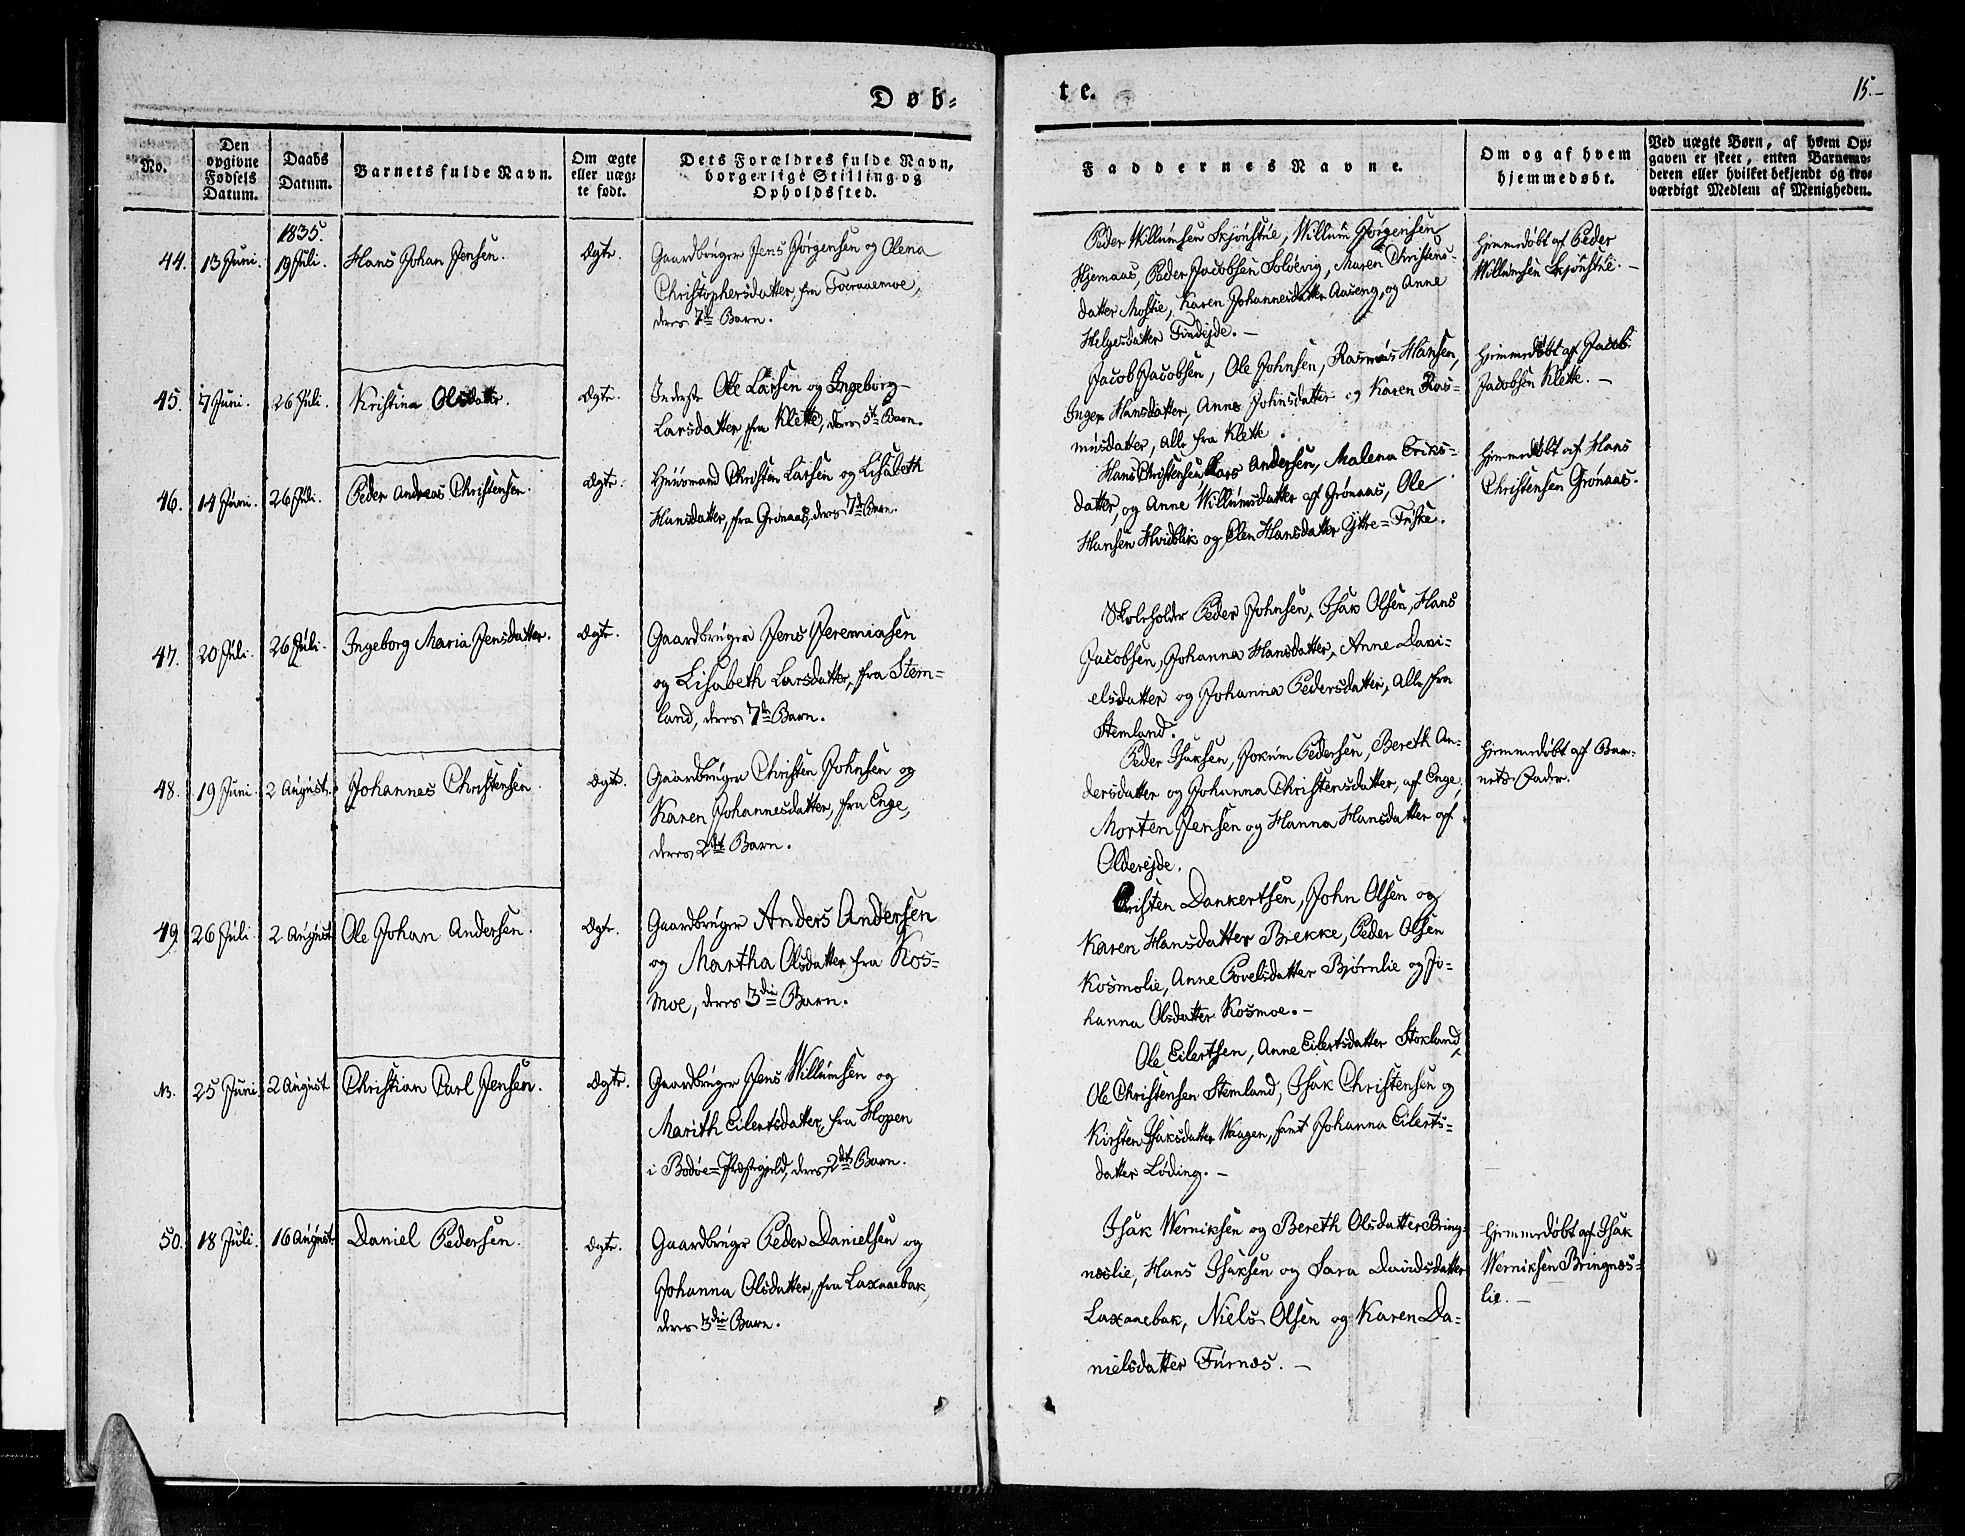 Døb=
te.
15.–
No.
Den
opgivne
Fødsels
Datum.
Daabs
Datum.
Barnets fulde Navn.
Om ægte
eller uæg-
te født.
Dets Forældres fulde Navn,
borgerlige Stilling og
Opholdssted.
Faddernes Navne.
Om og af hvem
hjemmedøbt.
Ved uægte Børn, af hvem Op-
gaven er skeet, enten Barnemo-
deren eller hvilket bekjendt og tro-
værdigt Medlem af Menigheden.
1835.
44. 13 Juni. 19 Juli. Hans Johan Jensen. Ægte.
Gaardbruger Jens Jørgensen og Olena
Christophersdatter, fra Tveraaemoe,
deres 7de Barn.
Peder Willumsen Skjønstue, Willum Jørgensen
Hjemaas, Peder Jacobsen Soløevig, Maren Christens-
datter Mostie, Karen Johannesdatter Aaseng, og Anne
Helgesdatter Findejde. –
Hjemmedøbt af Peder
Willumsen Skjønstue. –
45. 7 Juni. 26 Juli. Kristina Olsdatter. Ægte.
Inderste Ole Larsen og Ingeborg
Larsdatter, fra Klette, deres 5te Barn.
Jacob Jacobsen, Ole Johnsen, Rasmus Hansen,
Inger Hansdatter, Anne Johnsdatter og Karen Ras-
musdatter, alle fra Klette.
Hjemmedøbt af Jacob
Jacobsen Klette. –
46. 14 Juni. 26 Juli. Peder Andreas Christensen. Ægte.
Huusmand Christen Larsen og Lisabeth
Hansdatter, fra Grønaas, deres 7de Barn.
Hans Christensen, Lars Andersen, Malena Eriks-
datter, og Anne Willumsdatter af Grønaas, Ole
Hansen Hvidblik og Elen Hansdatter Ytre=Friske.
Hjemmedøbt af Hans
Christensen Grønaas.
47. 20 Juli. 26 Juli. Ingeborg Maria Jensdatter. Ægte.
Gaardbruger Jens Jeremiasen
og Lisabeth Larsdatter, fra Stem-
land, deres 7de Barn.
Skoleholder Peder Johnsen, Isak Olsen, Hans
Jacobsen, Johanna Hansdatter, Anne Dani-
elsdatter og Johanna Pedersdatter, alle fra
Stemland.
48. 19 Juni. 2 August. Johannes Christensen. Ægte.
Gaardbruger Christen Johnsen og
Karen Johannesdatter, fra Enge,
deres 2det Barn.
Peder Isaksen, Jokum Pedersen, Bereth An-
dersdatter og Johanna Christensdatter, af Enge,
Morten Jensen og Hanna Hansdatter af
Olderejde.
Hjemmedøbt af Bar-
nets Fader.
49. 26 Juli. 2 August. Ole Johan Andersen. Ægte.
Gaardbruger Anders Andersen
og Martha Olsdatter fra Kos-
moe, deres 3die Barn.
Christen Dankertsen, John Olsen og
Karen Hansdatter Brekke, Peder Olsen
Kosmolie, Anne Povelsdatter Bjørnlie og Jo-
hanna Olsdatter Kosmoe. –
N. 25 Juni 2 August Christian Carl Jensen. Ægte.
Gaardbruger Jens Willumsen og
Marith Eilertsdatter, fra Hopen
i Bodøe=Præstegjeld, deres 2det Barn.
Ole Eilertsen, Anne Eilertsdatter Stokland,
Ole Christensen Stemland, Isak Christensen og
Kirsten Isaksdatter Waagen, samt Johanna Eilerts-
datter Løding. –
50. 18 Juli. 16 August Daniel Pedersen. Ægte.
Gaardbruger Peder Danielsen og
Johanna Olsdatter, fra Laxaaebak,
deres 3die Barn.
Isak Werniksen og Bereth Olsdatter Bring-
neslie, Hans Isaksen og Sara Davidsdatter
Laxaaebak, Niels Olsen og Karen Da-
nielsdatter Furnæs. –
Hjemmedøbt af Isak
Werniksen Bringnæs-
lie. –